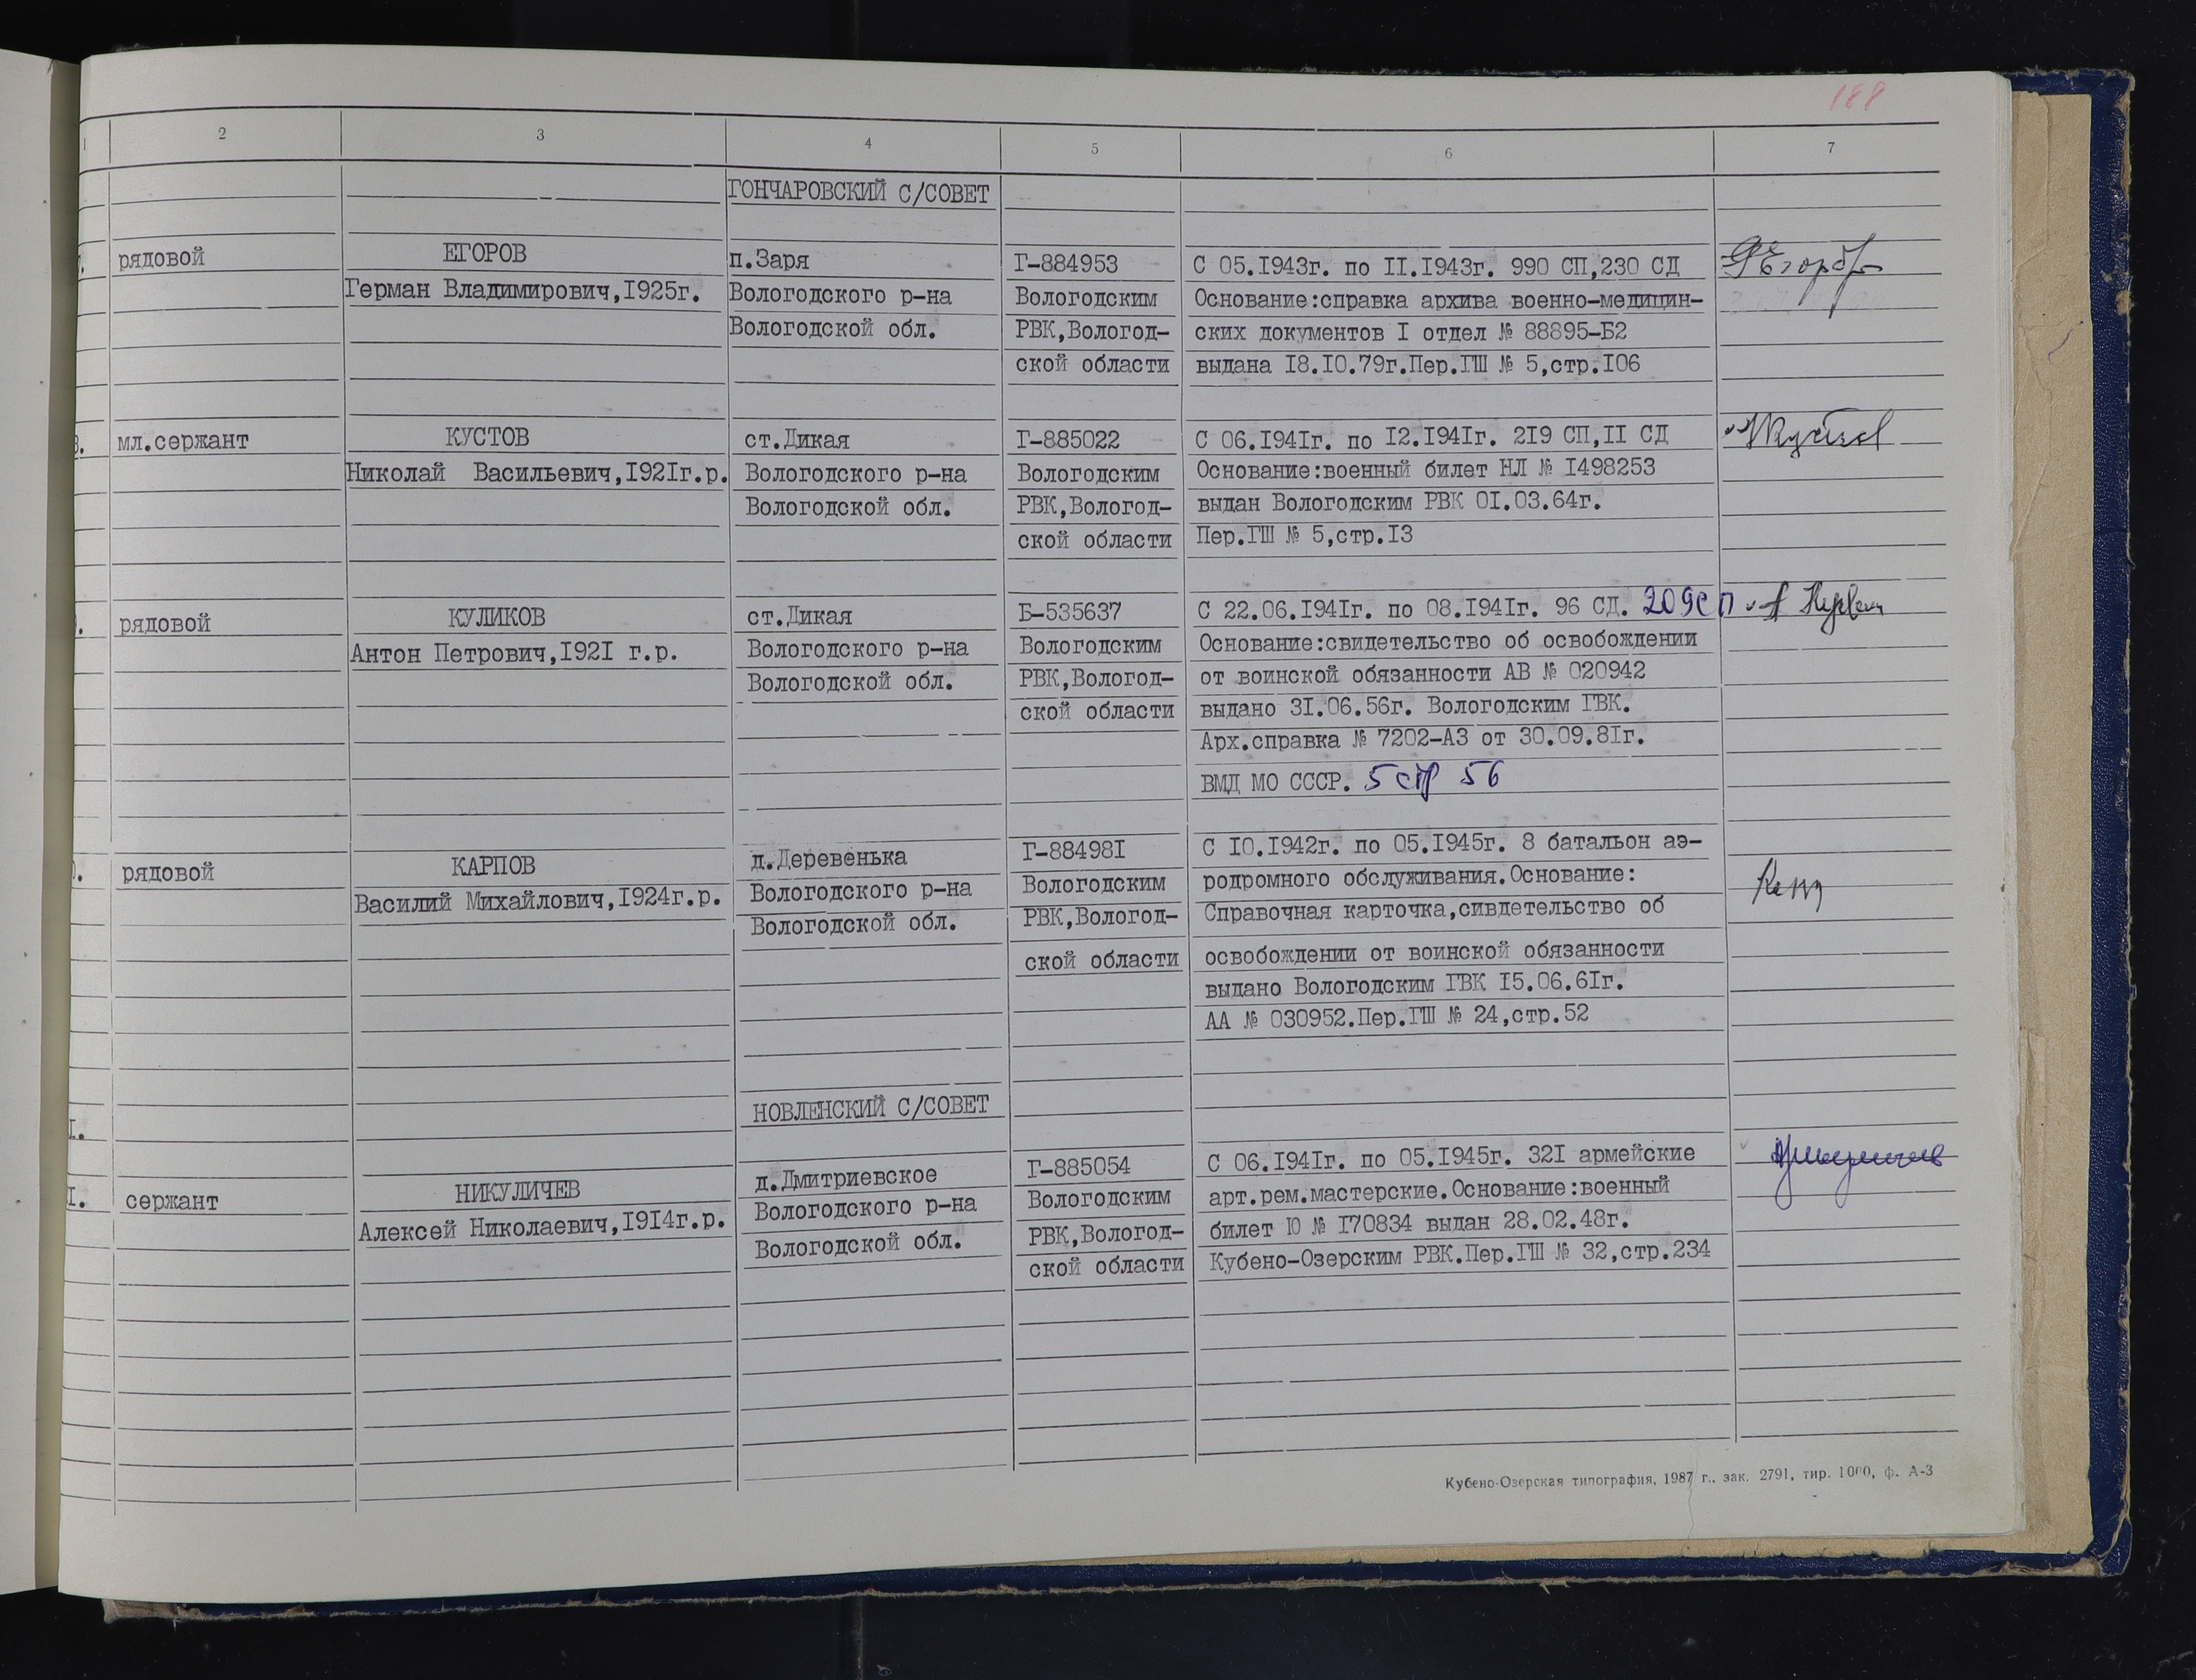 188
1 2 3 4 5 6 7
ГОНЧАРОВСКИЙ С/СОВЕТ
рядовой
ЕГОРОВ
Герман Владимирович,I925г.
п.Заря
Вологодского р-на
Вологодской обл.
Г-884953
Вологодским
РВК,Вологод-
ской области
С 05.I943г. по II.I943г. 990 СП,230 СД
Основание:справка архива военно-медицин-
ских документов I отдел № 88895-Б2
выдана I8.I0.79г.Пер.ГШ № 5,стр.I06
Егоров
мл.сержант
КУСТОВ
Николай Васильевич,I92Iг.р.
ст.Дикая
Вологодского р-на
Вологодской обл.
Г-885022
Вологодским
РВК,Вологод-
ской области
С 06.I94Iг. по I2.I94Iг. 2I9 СП,II СД
Основание:военный билет НЛ № I498253
выдан Вологодским РВК 0I.03.64г.
Пер.ГШ № 5,стр.I3
рядовой
КУЛИКОВ
Антон Петрович,I92I г.р.
ст.Дикая
Вологодского р-на
Вологодской обл.
Б-535637
Вологодским
РВК,Вологод-
ской области
С 22.06.I94Iг. по 08.I94Iг. 96 СД. 209 СП
Основание:свидетельство об освобождении
от воинской обязанности АВ № 020942
выдано 3I.06.56г. Вологодским ГВК.
Арх.справка № 7202-АЗ от 30.09.8Iг.
ВМД МО СССР. 5 стр 56
рядовой
КАРПОВ
Василий Михайлович,I924г.р.
д.Деревенька
Вологодского р-на
Вологодской обл.
Г-88498I
Вологодским
РВК,Вологод-
ской области
С I0.I942г. по 05.I945г. 8 батальон аэ-
родромного обслуживания.Основание:
Справочная карточка,сивдетельство об
освобождении от воинской обязанности
выдано Вологодским ГВК I5.06.6Iг.
АА № 030952.Пер.ГШ № 24,стр.52
НОВЛЕНСКИЙ С/СОВЕТ
I.
I.
сержант
НИКУЛИЧЕВ
Алексей Николаевич,I9I4г.р.
д.Дмитриевское
Вологодского р-на
Вологодской обл.
Г-885054
Вологодским
РВК,Вологод-
ской области
С 06.I94Iг. по 05.I945г. 32I армейские
арт.рем.мастерские.Основание:военный
билет Ю № I70834 выдан 28.02.48г.
Кубено-Озерским РВК.Пер.ГШ № 32,стр.234
Кубено-Озерская типография, 1987 г., зак. 2791, тир. 1000, ф. А-3